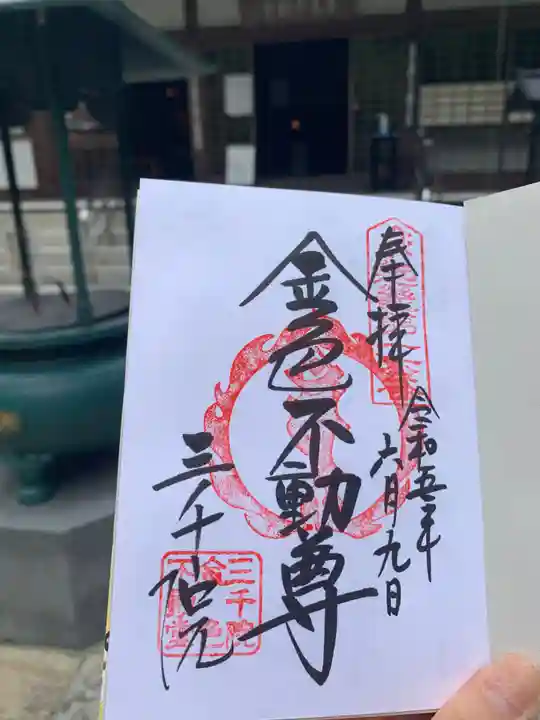 奉拝
令和五年
六月九日
金色不動尊
三千院
三千院
金色
不動堂